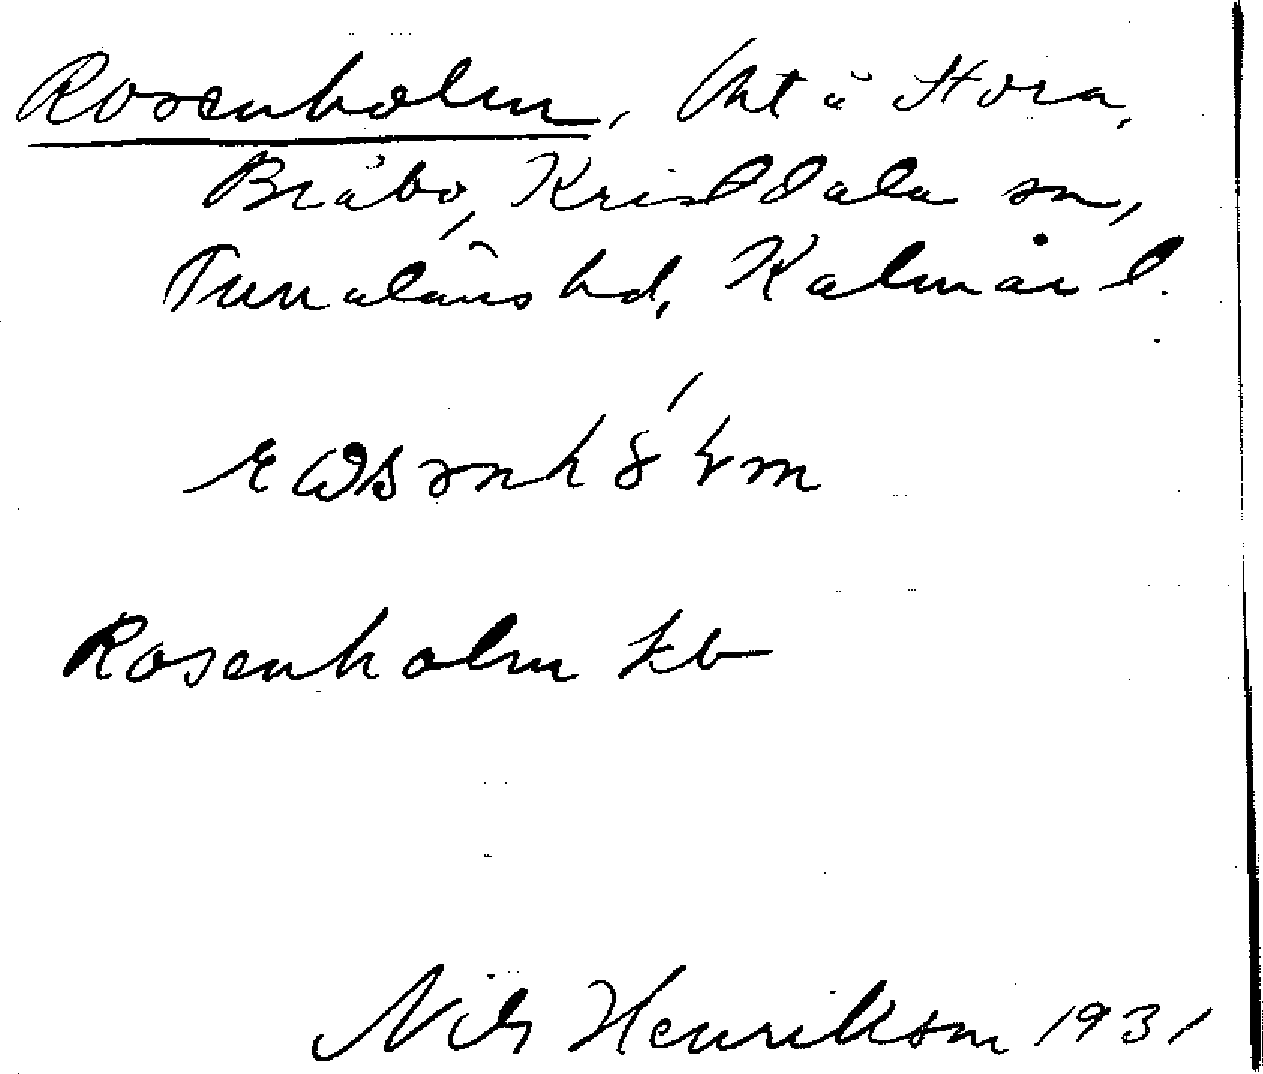 Rosenholm, lht å Stora
Bråbo, Kristdala sn,
Tunaläns hd, Kalmar l.
Rosenholm kb
Nils Henrikson 1931